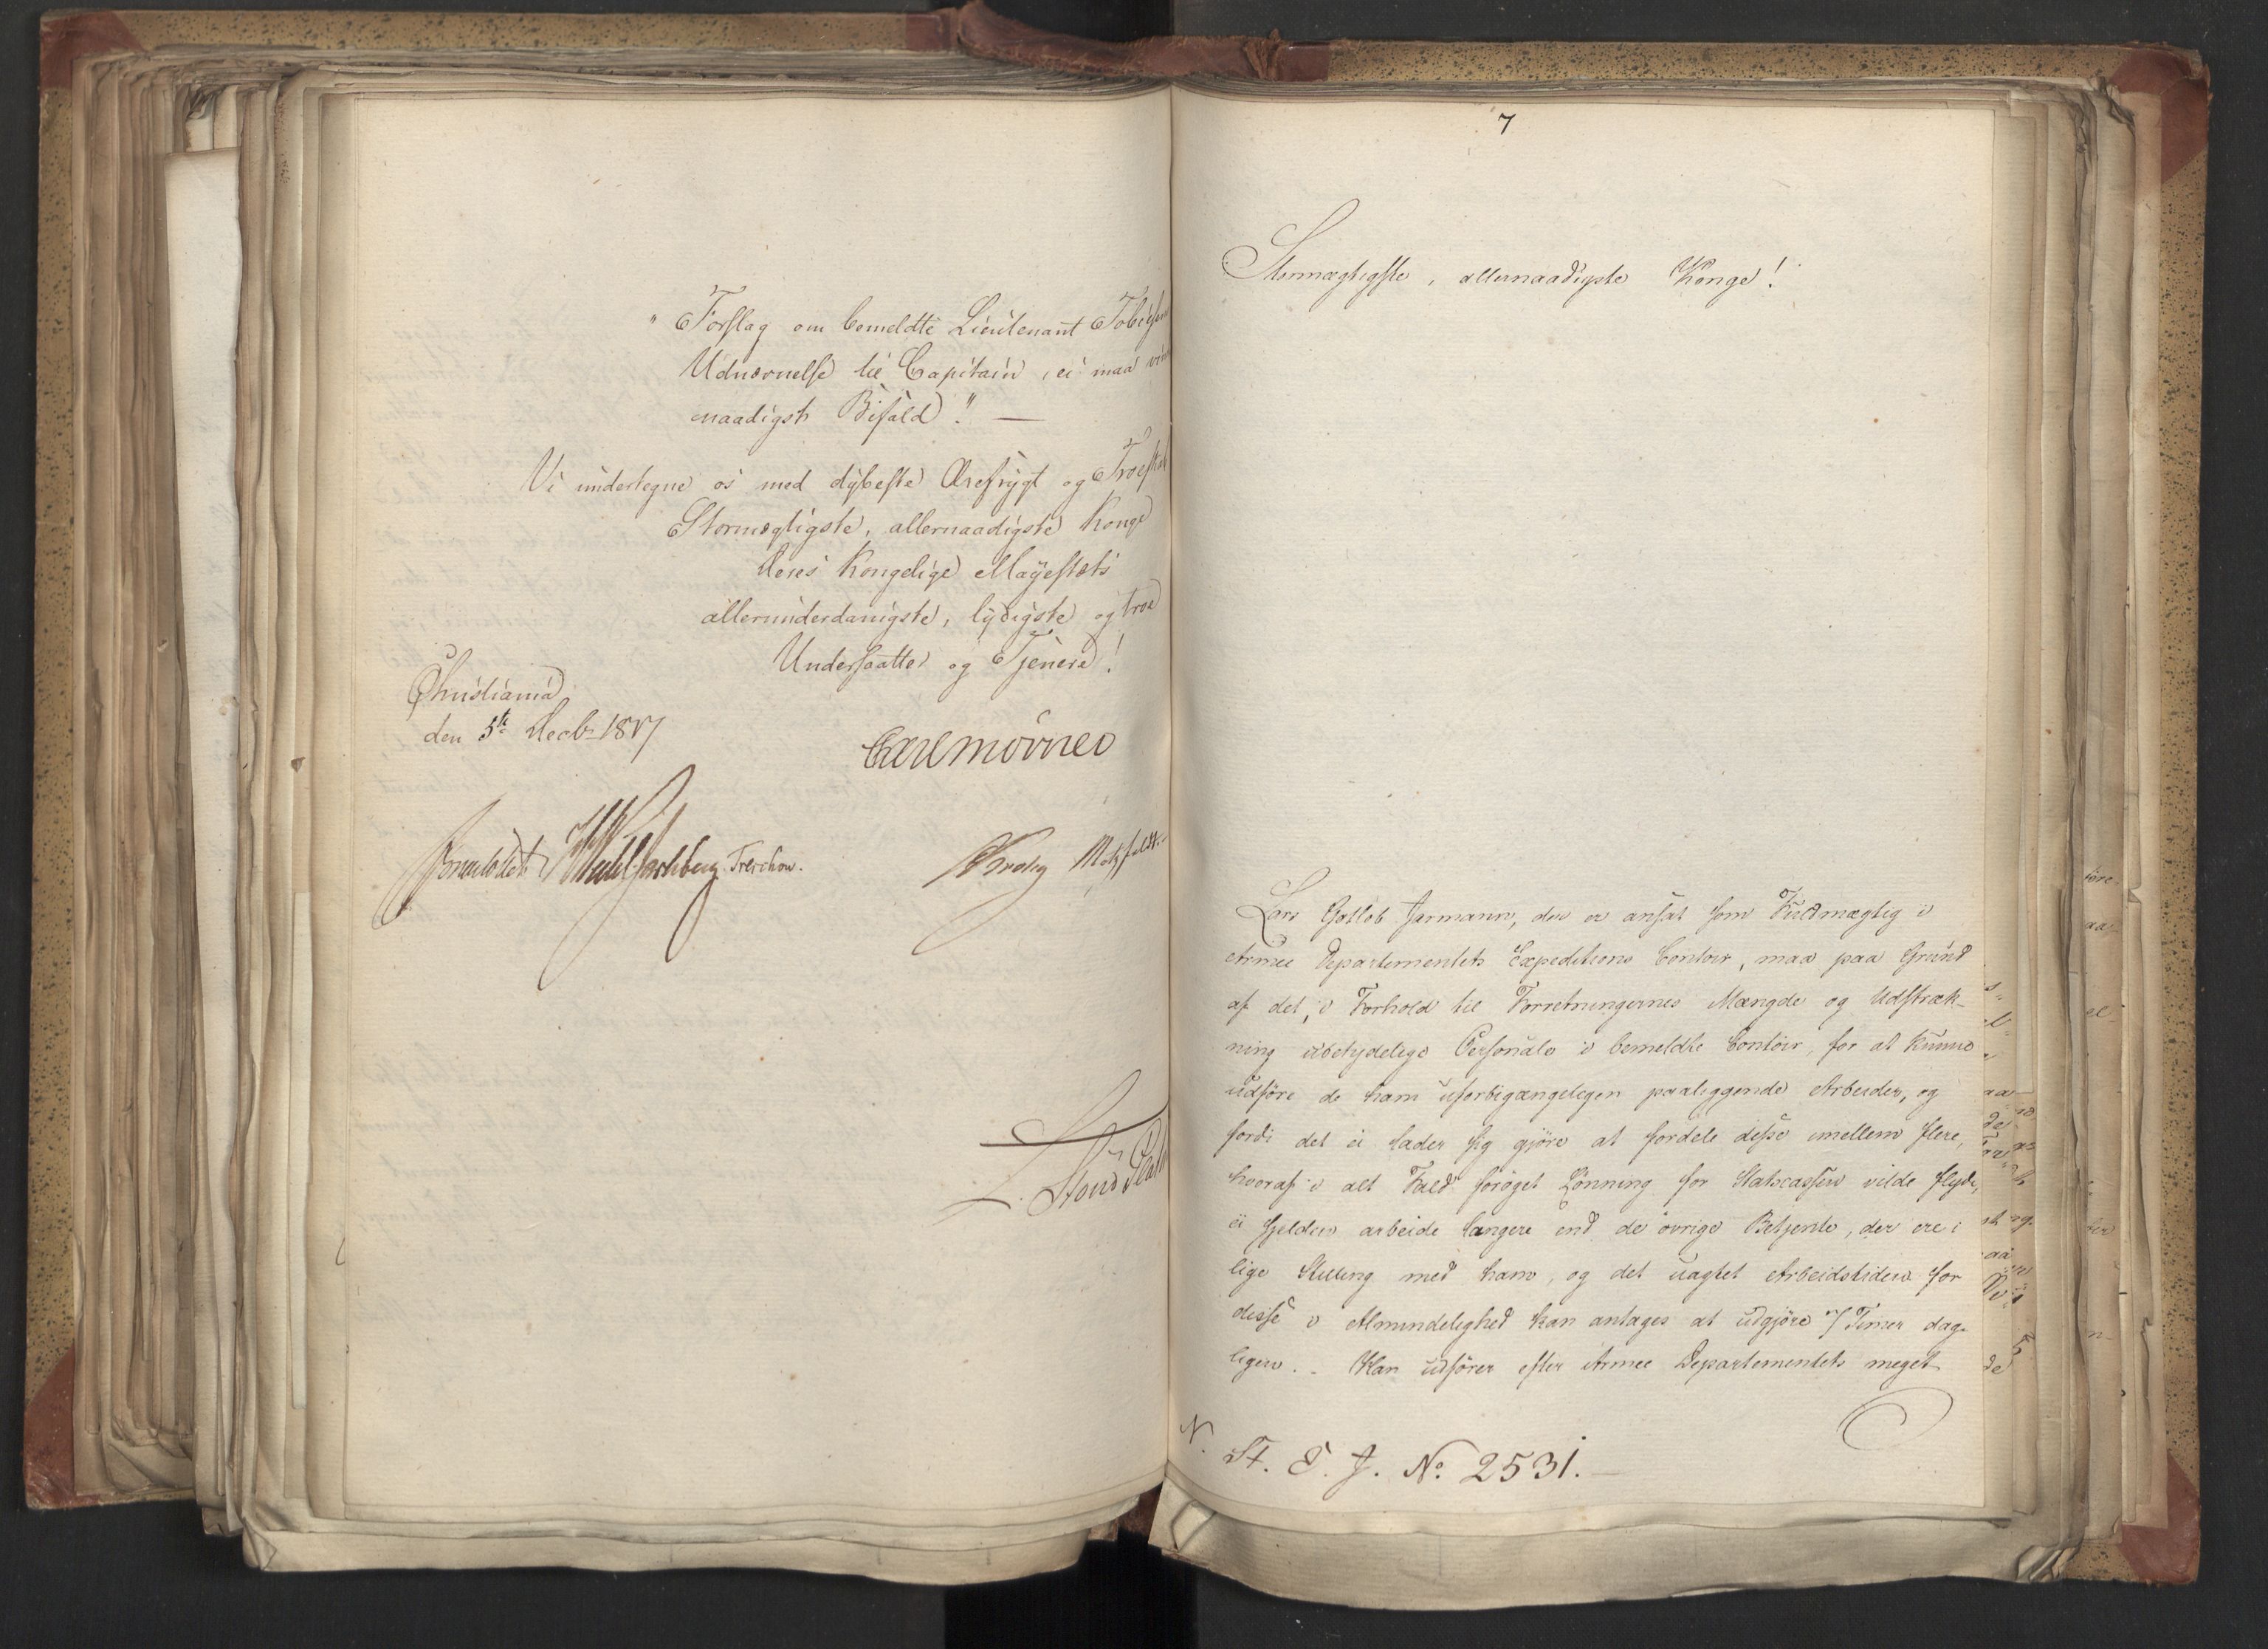 " Forslag om bemeldte Lieutenant
Udnævnelse til Capitain, ei maa
naadigst Bifald". —
Vi undertegne os med dybeste Ærefrygt og
Stormægtigste, allernaadigste Konge
Deres Kongelige Mayestæts
allerunderdanigste, lydigste og troe
Undersaatter og Tjenere!
Christiania
den 5te Decbr 1817
Carl Mörner
Sommerhielm Wedel Jarlsberg Treschow.
Krohg Motzfeldt.
L. Stoud Platou
7
Stormægtigste, allernaadigste Konge!
Lars Gotlob Jermann, der er ansat som Fuldmægtig i
Armee Departementets Expeditions Contoir, maa paa Grund
af det, i Forhold til Forretningernes Mængde og Udstræk-
ning ubetydelige Personale i bemeldte Contoir, for at kunne
udføre de ham uforbigængeligen paaliggende Arbeider, og
fordi det ei lader sig gjöre at fordele disse imellem flere,
hvoraf i alt Fald forøget Lønning for Statscassen vilde flyde,
ei sjelden arbeide længere end de øvrige Betjente, der ere i
lige Stilling med ham, og det uagtet Arbeidstiden for
disse i Almindelighed kan antages at udgjöre 7 Timer dag-
ligen. - Han udfører efter Armee Departementets meget
N.
St. E. J. No. 2531. —